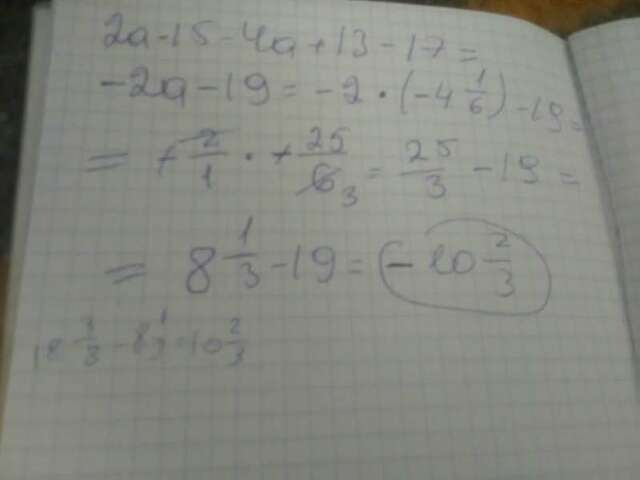 2a-15-4a+13-17=
-2a-19=-2·(-4 1/6)-19=
= +2/1 · +25/6 3 = 25/3 -19=
= 8 1/3 -19= -10 2/3
18 3/3 - 8 1/3 = 10 2/3